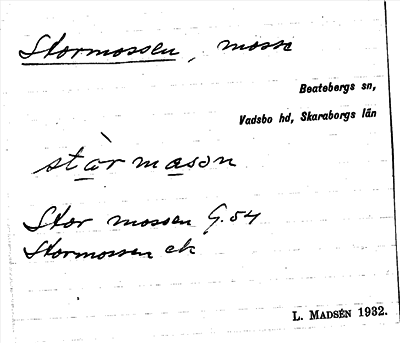 Stormossen, mosse
Beatebergs sn,
Vadsbo hd, Skaraborgs län
stòrmasən
Stor mossen G.54
Stormossen ek
L. MADSÉN 1932.